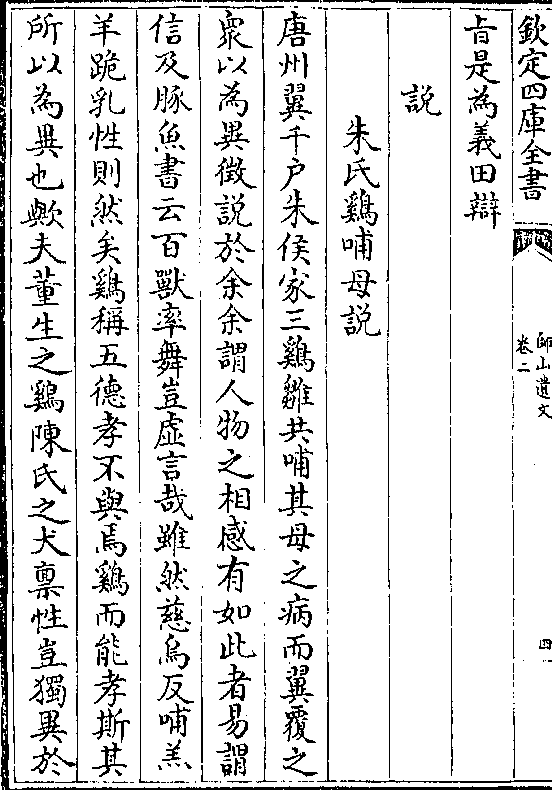 欽定四庫全書
師山遺文
卷二
四
旨是為義田辯
說
朱氏鷄哺母說
唐州翼千戶朱侯家三鷄雛共哺其母之病而翼覆之
衆以為異徵說於余余謂人物之相感有如此者易謂
信及豚魚書云百獸率舞豈虛言哉雖然慈烏反哺羔
羊跪乳性則然矣鷄稱五德孝不與焉鷄而能孝斯其
所以為異也歟夫董生之鷄陳氏之犬稟性豈獨異於